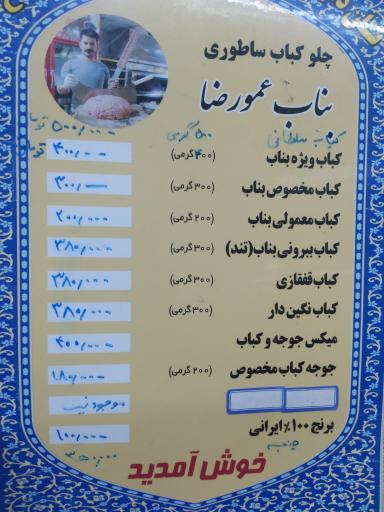 چلو کباب ساطوری
بناب عمورضا
کباب سلطانی ۵۰۰ گرمی ۵۰۰/۰۰۰ تومان
کباب ویژه بناب (۴۰۰ گرمی) ۴۰۰/۰۰۰ تومان
کباب مخصوص بناب (۳۰۰ گرمی) ۳۰۰/۰۰۰
کباب معمولی بناب (۲۰۰ گرمی) ۲۰۰/۰۰۰
کباب بیرونی بناب (تند) (۳۰۰ گرمی) ۳۸۰/۰۰۰
کباب قفقازی (۳۰۰ گرمی) ۳۸۰/۰۰۰
کباب نگین دار (۳۰۰ گرمی) ۳۸۰/۰۰۰
میکس جوجه و کباب ۴۰۰/۰۰۰
جوجه کباب مخصوص (۲۰۰ گرمی) ۱۸۰/۰۰۰
موجود نیست
برنج ۱۰۰٪ ایرانی ۱۰۰/۰۰۰
خوش آمدید